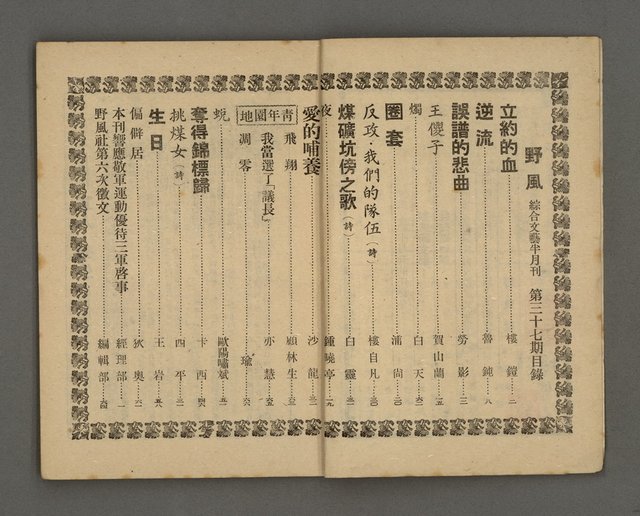 野風 綜合文藝半月刊 第三十七期目錄
立約的血 樓鎧 二
逆流 魯鈍 八
誤譜的悲曲 勞影 一三
王傻子 賀山蘭 一五
燭 白天
圈套 浦尚
反攻·我們的隊伍（詩） 樓自凡
煤礦坑傍之歌（詩） 白靈
夜 鍾曉亭
愛的哺養 沙龍
青年園地
飛翔 顧林生
我當選了「議長」 亦慧
凋零 瑜
蛻 歐陽嘯斌
奪得錦標歸 卡西
挑煤女（詩） 四平
生日 王岩
偏僻居 狄奧
本刊響應敬軍運動優待三軍啓事 經理部
野風社第六次徵文 編輯部